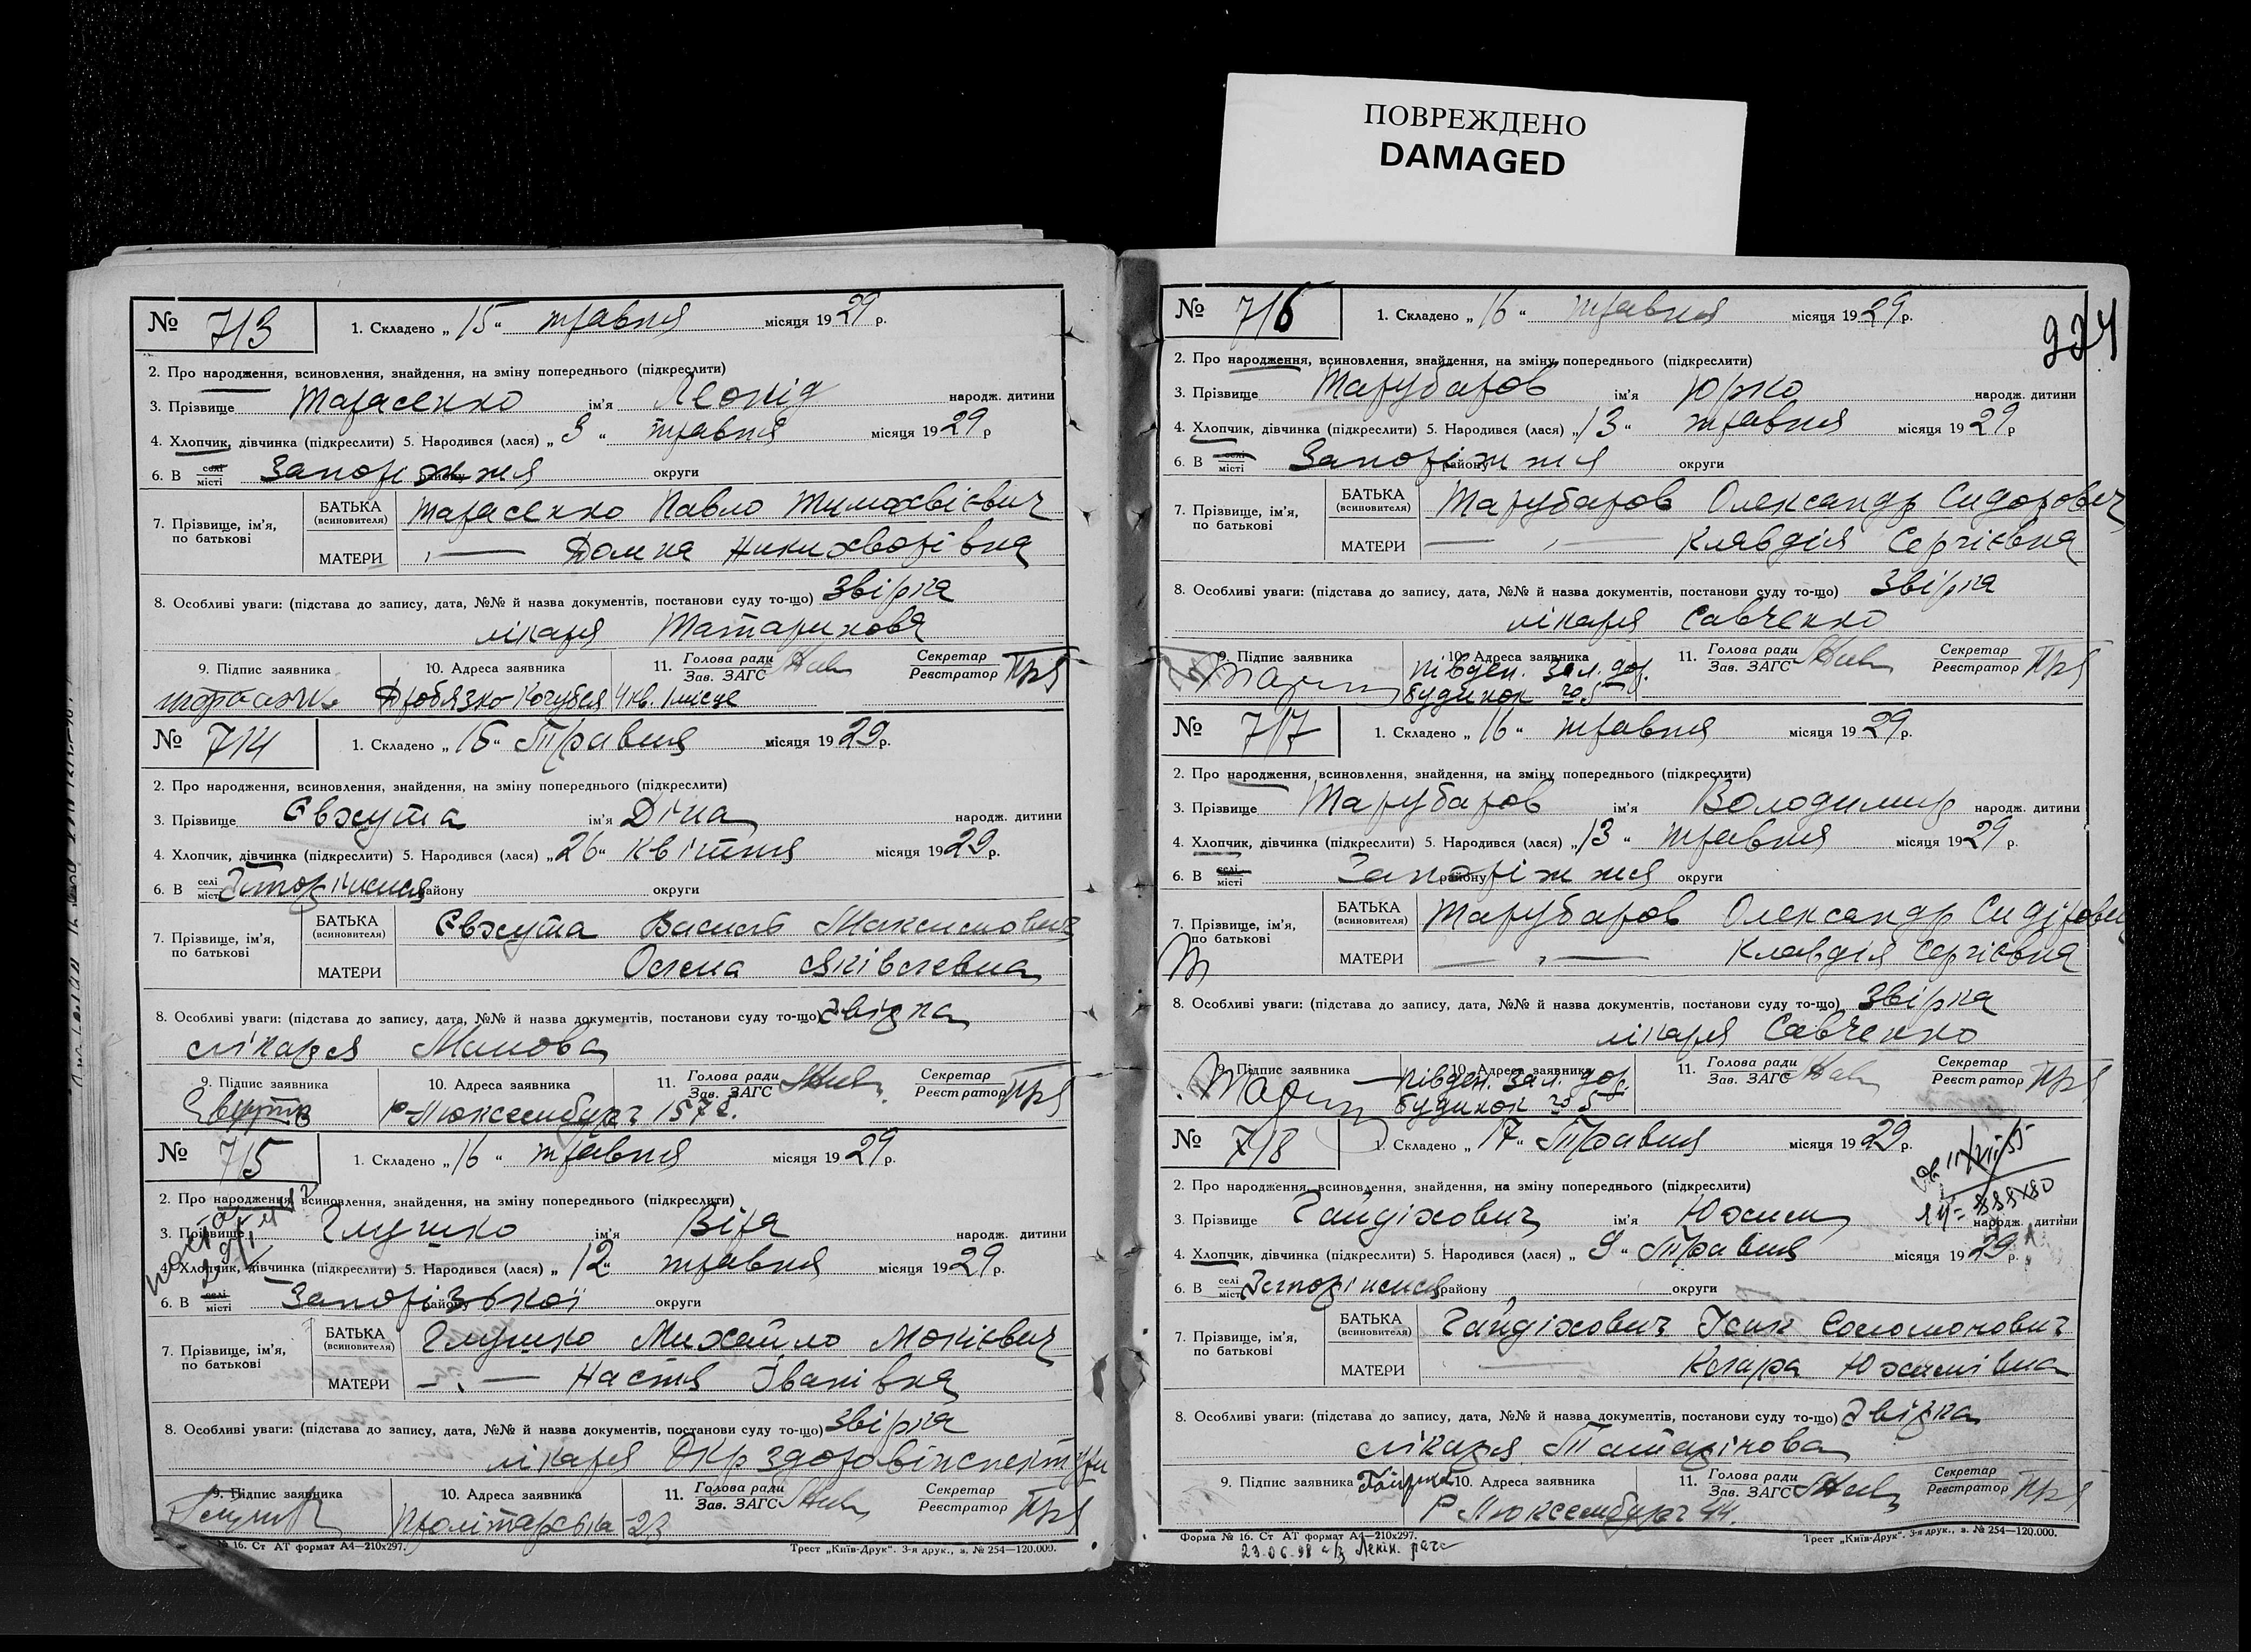 ПОВРЕЖДЕНО
DAMAGED
№ 713
1. Складено „ 15 “ травня місяця 1929 р.
2. Про народження, всиновлення, знайдення, на зміну попереднього (підкреслити)
3. Прізвище Тарасенко ім'я Леонід народж. дитини
4. Хлопчик, дівчинка (підкреслити) 5. Народився (лася) „ 3 “ травня місяця 1929 р
6. В селі місті Запоріжжя району округи
7. Прізвище, ім'я, по батькові
БАТЬКА (всиновителя) Тарасенко Павло Тимохвієвич
МАТЕРИ „ — Домна Никихворівна
8. Особливі уваги: (підстава до запису, дата, №№ й назва документів, постанови суду то-що) Звірка
лікаря Татаринова
9. Підпис заявника 10. Адреса заявника 11. Голова ради Зав. ЗАГС Секретар Реєстратор
Дробязко Кочубея 4 кв. 1 місце
№ 714
1. Складено „ 16 “ Травня місяця 1929 р.
2. Про народження, всиновлення, знайдення, на зміну попереднього (підкреслити)
3. Прізвище Євжута ім'я Діна народж. дитини
4. Хлопчик, дівчинка (підкреслити) 5. Народився (лася) „ 26 “ квітня місяця 1929 р.
6. В селі місті Запоріжжя району округи
7. Прізвище, ім'я, по батькові
БАТЬКА (всиновителя) Євжута Василь Максимович
МАТЕРИ Олена Яківлевна
8. Особливі уваги: (підстава до запису, дата, №№ й назва документів, постанови суду то-що) Звірка
лікаря Манова
9. Підпис заявника 10. Адреса заявника 11. Голова ради Зав. ЗАГС Секретар Реєстратор
Р-Люксембург 157
№ 715
1. Складено „ 16 “ травня місяця 1929 р.
2. Про народження, всиновлення, знайдення, на зміну попереднього (підкреслити)
3. Прізвище Глушко ім'я Віра народж. дитини
4. Хлопчик, дівчинка (підкреслити) 5. Народився (лася) „ 12 “ травня місяця 1929 р.
6. В селі місті Запорізької району округи
7. Прізвище, ім'я, по батькові
БАТЬКА (всиновителя) Глушко Михайло Мокієвич
МАТЕРИ — „ — Настя Іванівна
8. Особливі уваги: (підстава до запису, дата, №№ й назва документів, постанови суду то-що) Звірка
лікаря Окрздоровінспектури
9. Підпис заявника 10. Адреса заявника 11. Голова ради Зав. ЗАГС Секретар Реєстратор
Пролітарська 23
№ 16. Ст АТ формат А4—210x297. Трест „Київ-Друк“. 3-я друк., з. № 254—120.000.
224
№ 716
1. Складено „ 16 “ травня місяця 1929 р.
2. Про народження, всиновлення, знайдення, на зміну попереднього (підкреслити)
3. Прізвище Тарубаров ім'я Юрко народж. дитини
4. Хлопчик, дівчинка (підкреслити) 5. Народився (лася) „ 13 “ травня місяця 1929 р
6. В селі місті Запоріжжя району округи
7. Прізвище, ім'я, по батькові
БАТЬКА (всиновителя) Тарубаров Олександр Сидорович
МАТЕРИ — „ — Клавдія Сергієвна
8. Особливі уваги: (підстава до запису, дата, №№ й назва документів, постанови суду то-що) Звірка
лікаря Савченко
9. Підпис заявника 10. Адреса заявника 11. Голова ради Зав. ЗАГС Секретар Реєстратор
Півден. зал. дор.
будинок № 5
№ 717
1. Складено „ 16 “ травня місяця 1929 р.
2. Про народження, всиновлення, знайдення, на зміну попереднього (підкреслити)
3. Прізвище Тарубаров ім'я Володимир народж. дитини
4. Хлопчик, дівчинка (підкреслити) 5. Народився (лася) „ 13 “ травня місяця 1929 р.
6. В селі місті Запоріжжя району округи
7. Прізвище, ім'я, по батькові
БАТЬКА (всиновителя) Тарубаров Олександр Сидорович
МАТЕРИ — „ — Клавдія Сергієвна
8. Особливі уваги: (підстава до запису, дата, №№ й назва документів, постанови суду то-що) Звірка
лікаря Савченко
9. Підпис заявника 10. Адреса заявника 11. Голова ради Зав. ЗАГС Секретар Реєстратор
Півден. зал. дор.
будинок № 5
№ 718
1. Складено „ 17 “ Травня місяця 1929 р.
2. Про народження, всиновлення, знайдення, на зміну попереднього (підкреслити)
3. Прізвище Гайдіхович ім'я Юхим народж. дитини
4. Хлопчик, дівчинка (підкреслити) 5. Народився (лася) „ 9 “ Травня місяця 1929 р.
6. В селі місті Запоріжжя району округи
7. Прізвище, ім'я, по батькові
БАТЬКА (всиновителя) Гайдіхович Ісак Соломонович
МАТЕРИ — Клара Юхимівна
8. Особливі уваги: (підстава до запису, дата, №№ й назва документів, постанови суду то-що) Звірка
лікаря Татарінова
9. Підпис заявника 10. Адреса заявника 11. Голова ради Зав. ЗАГС Секретар Реєстратор
Р Люксембург 44.
Форма № 16. Ст АТ формат А4—210x297. Трест „Київ-Друк“. 3-я друк., з. № 254—120.000.
23.06.98 а/з Ленін. рагс